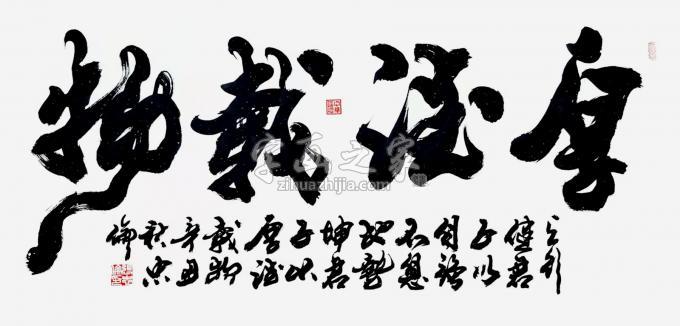 厚德載物
天行
健君
子以
自強
不息
地勢
坤君
子以
厚德
載物
辛丑
秋忠
字画之家
zihuazhijia.com